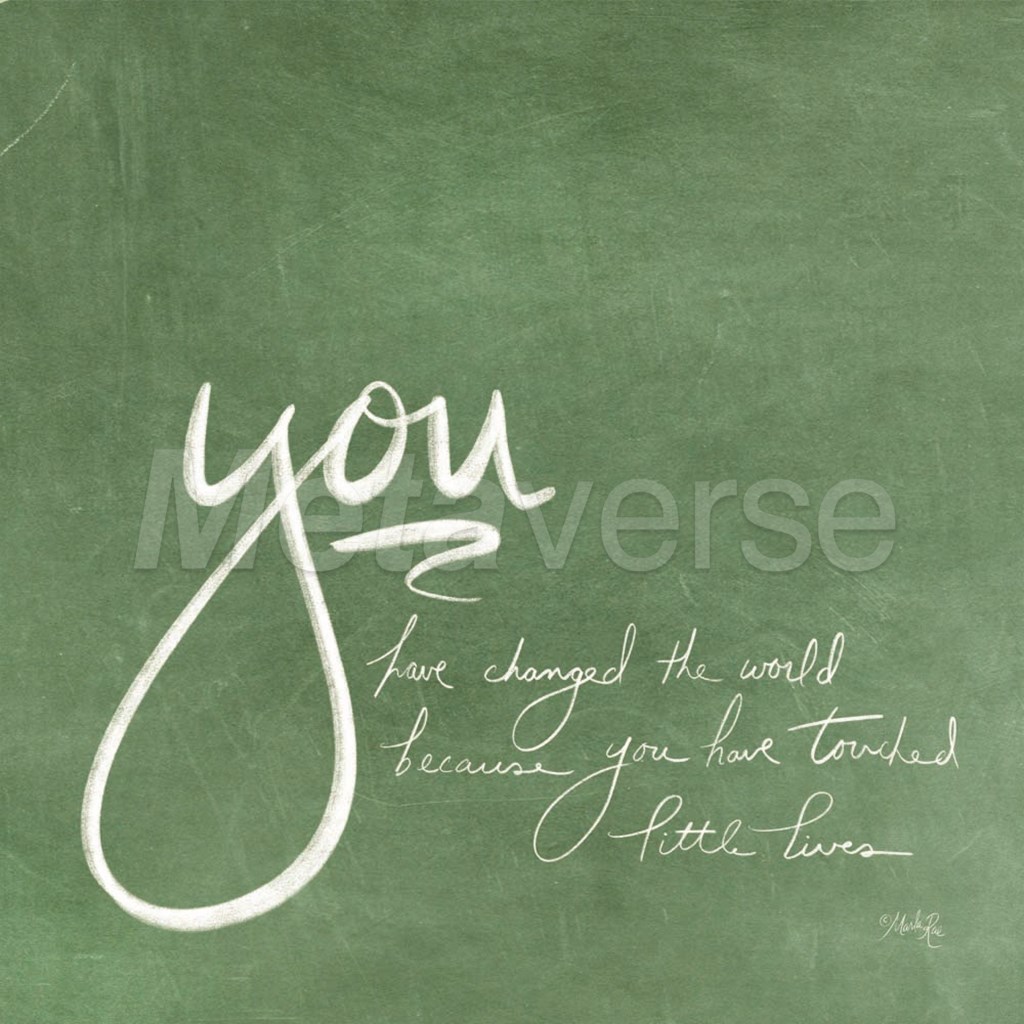 you
Metaverse
have changed the world
because you have touched
little lives
©Marla Rae